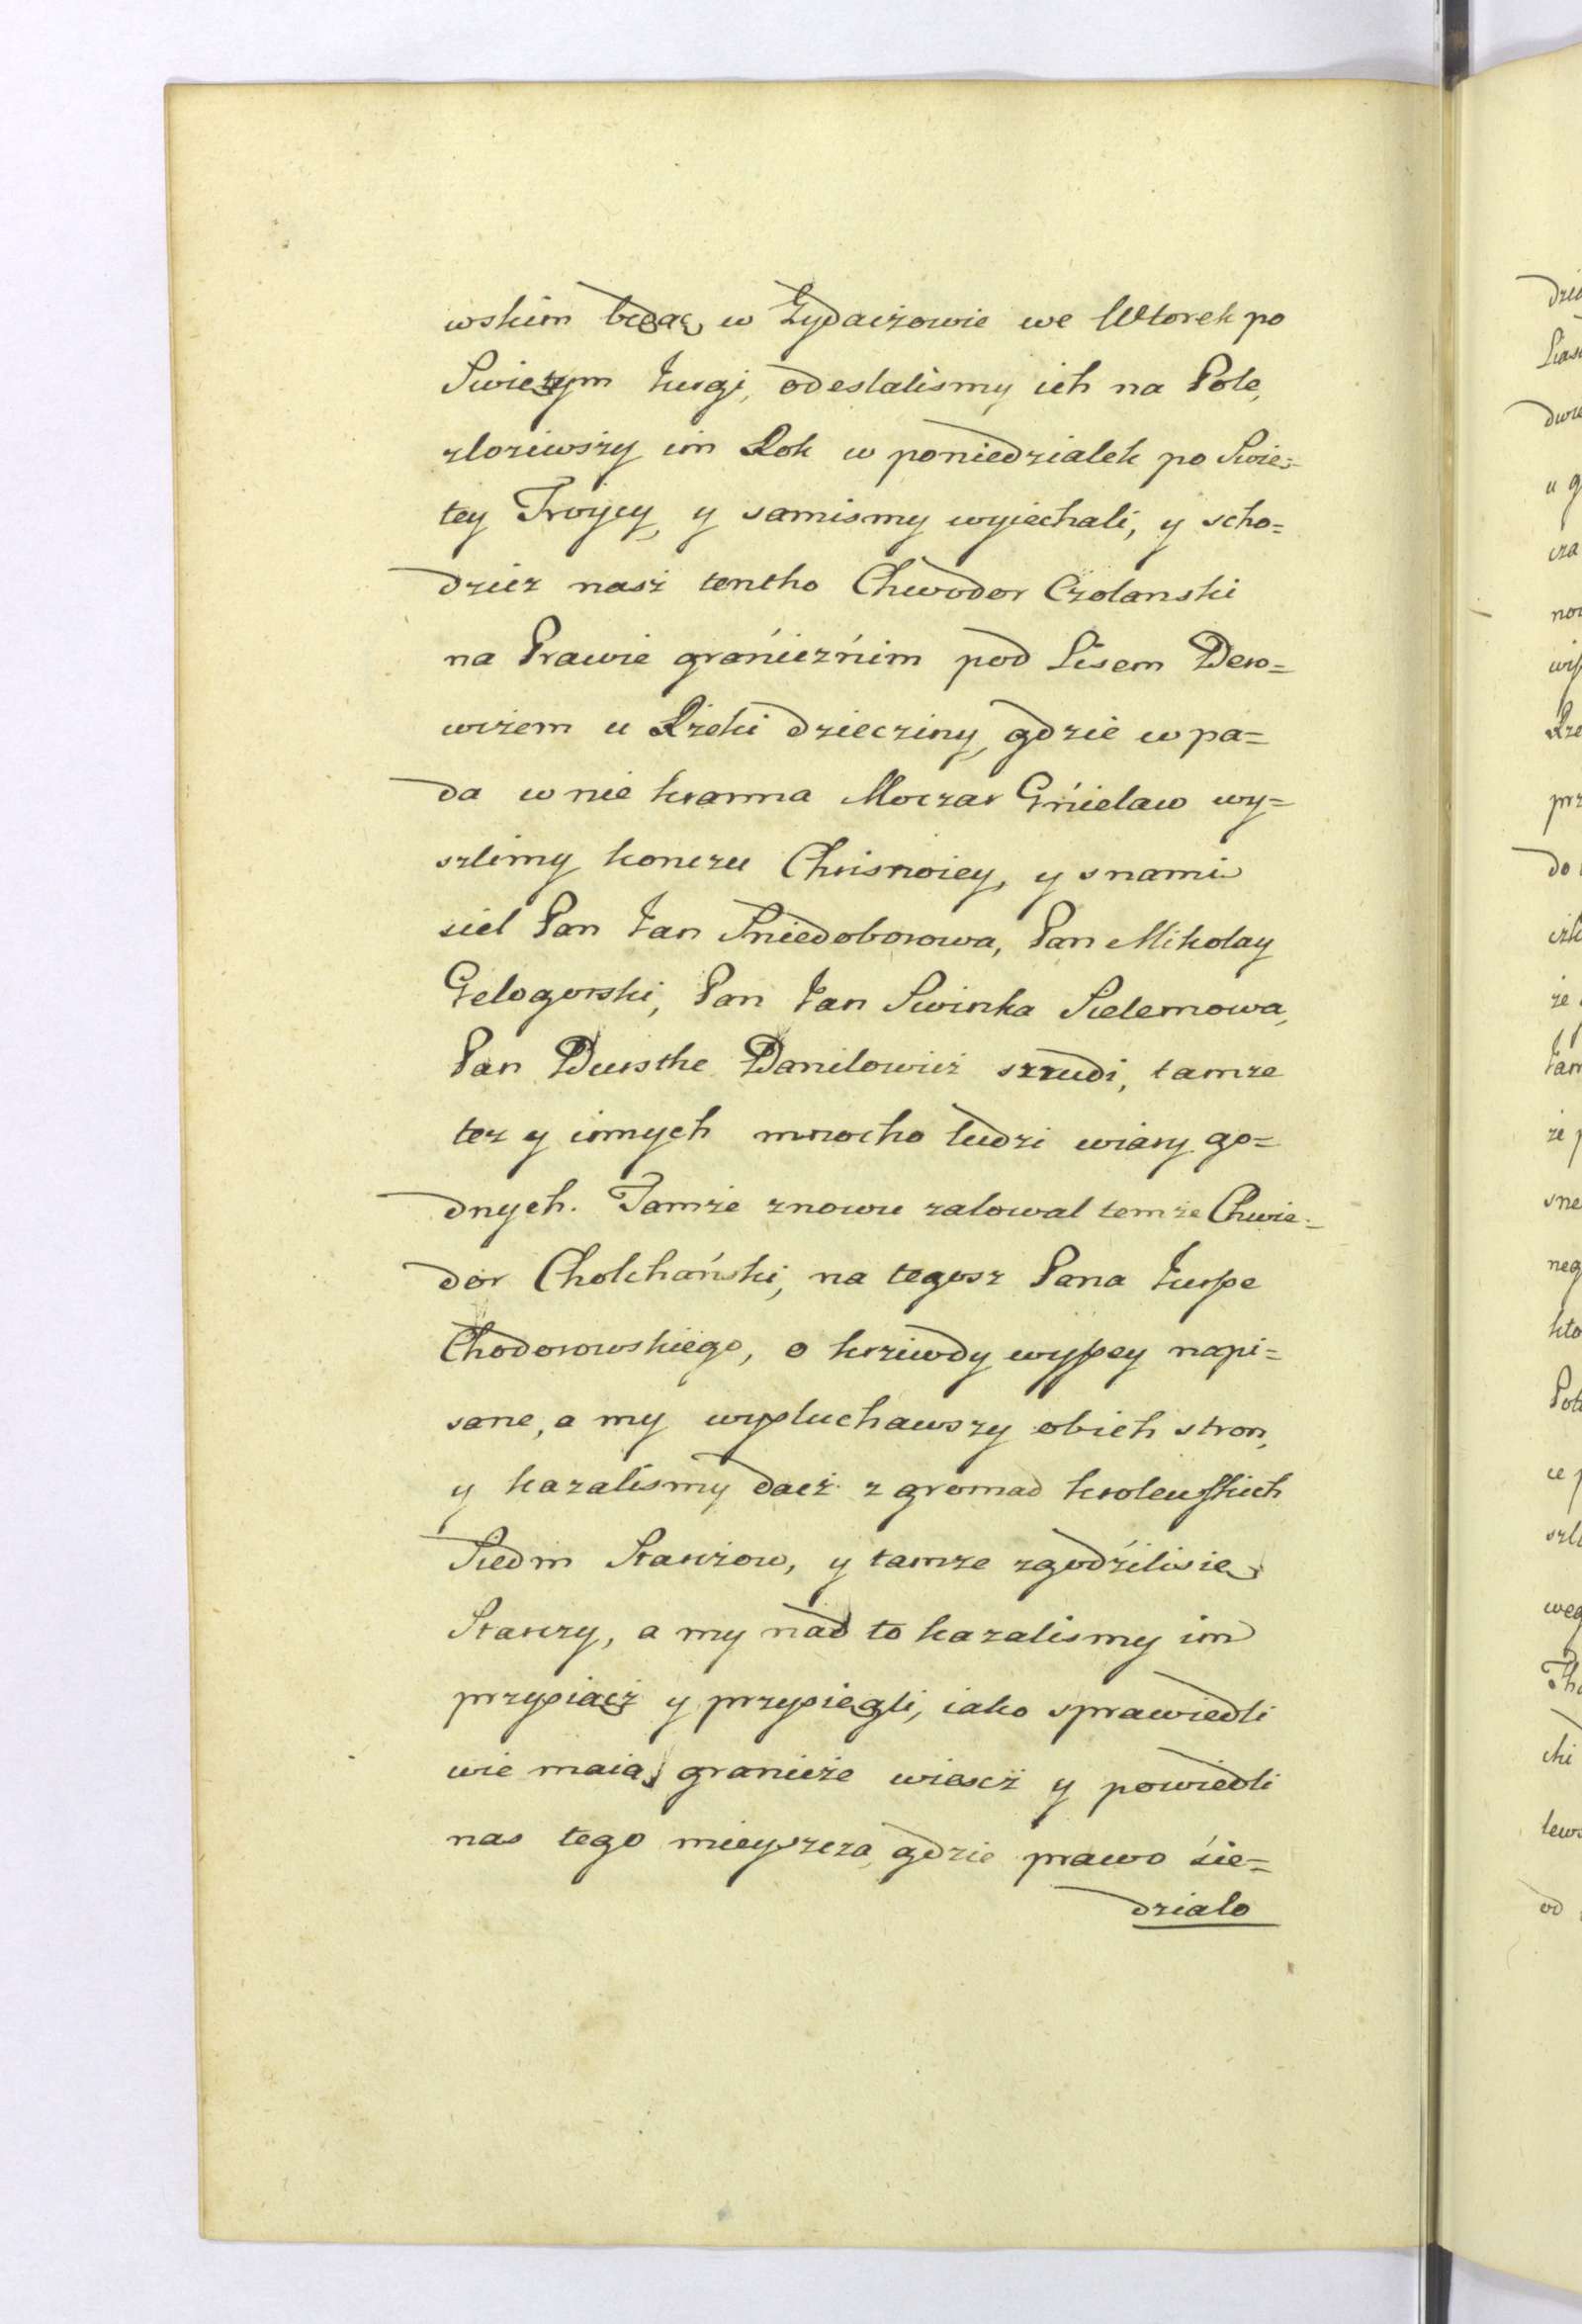 wskim będąc w Żydaczowie we Wtorek po
Swiętym Jurgi, odeslalismy ich na Pole,
zloziwszy im Rok w poniedzialek po Swie=
tey Troycy, y samismy wyiechali, y scho=
dziez nasż tentho Chwodor Czolanski
na Prawie gránicznim pod Lisem Dero=
wiżem u Rżeki dziecziny, gdzie wpa=
da w nie kranna Moczar Gńielaw wy=
szlimy konczu Chrisnoiey, y snami
siel Pan Jan Sniedoborowa, Pan Mikolay
Gelogorski, Pan Jan Swinka Sielernowa,
Pan Dursthe Danilowicz szrudi, tamze
tez y innych mnocho ludzi wiary go=
dnych. Tamże znowu zalowal temże Chwie=
dor Cholchański, na tegosz Pana Jurße
Chodorowskiego, o krziwdy wyßey napi=
sane, a my wysluchawszy obich stron,
y kazalismy dacż z gromad krolewskich
Siedm Starcżow, y tamze zgodźilisie
Starczy, a my nad to kazalismy im
przysiącż y przysiegli, iako sprawiedli
wie maią granicże wiescż y powiedli
nas tego mieyszcza, gdzie prawo śie=
dzialo